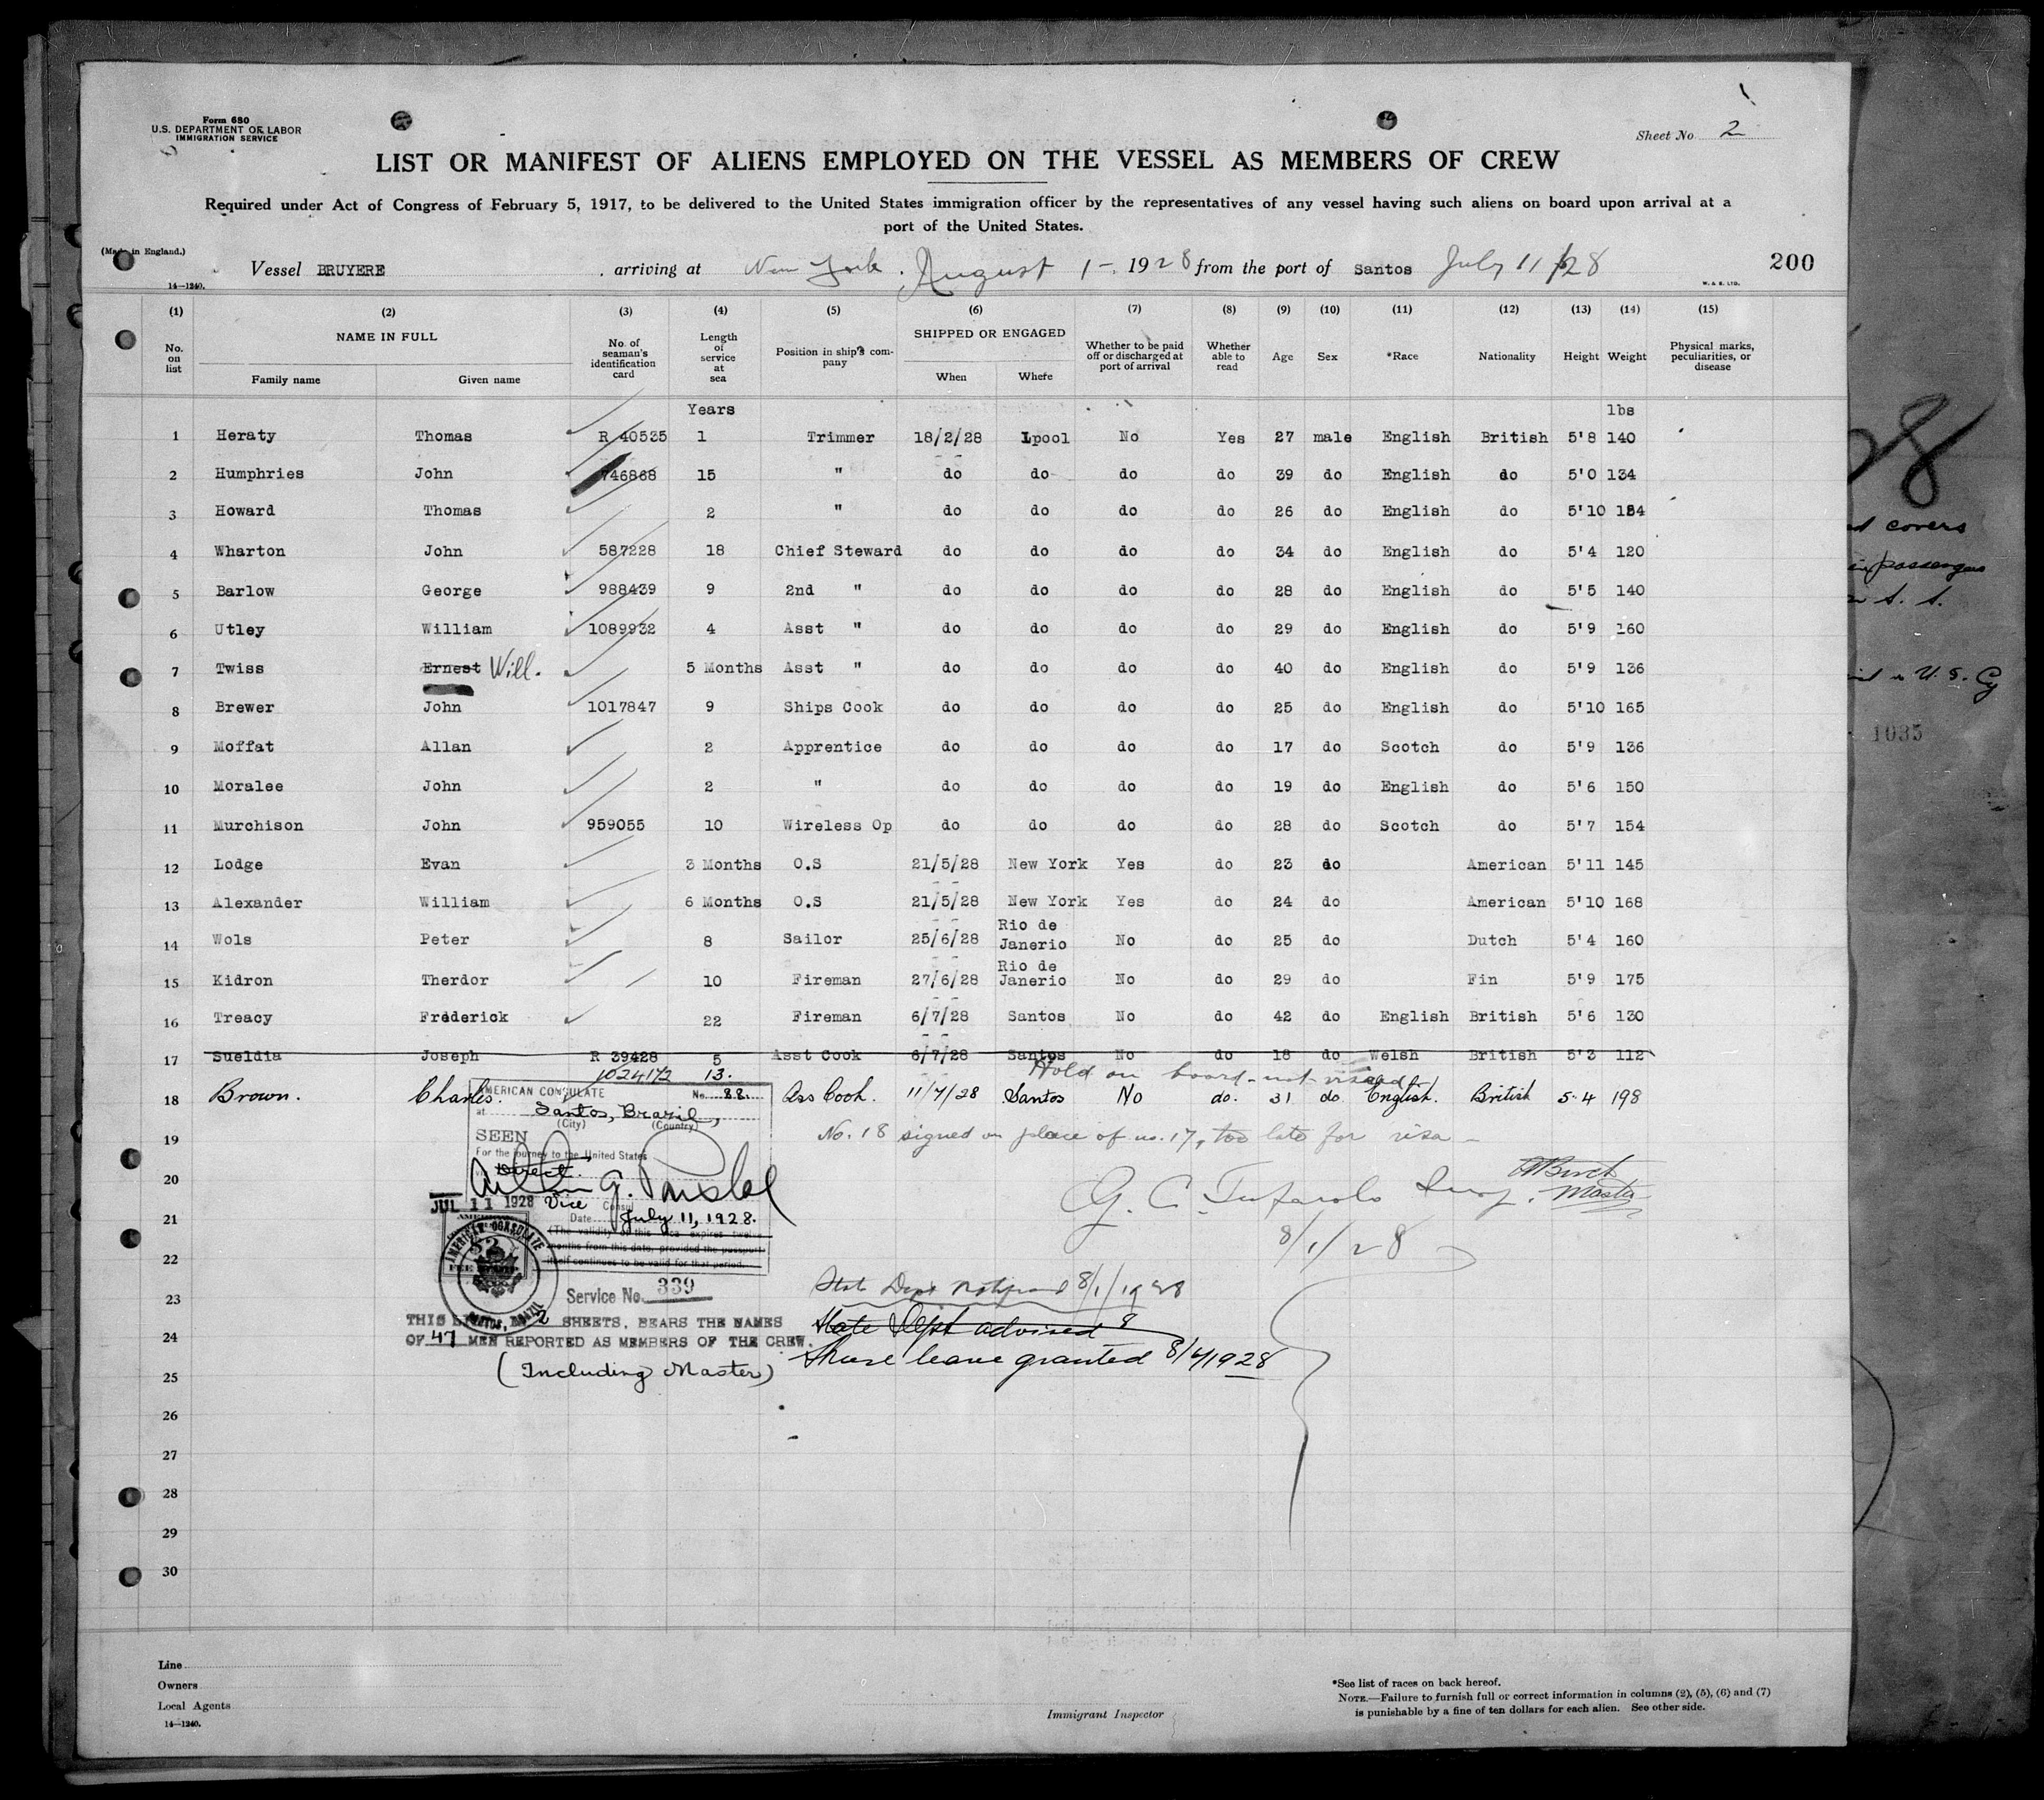 Form 680
U.S. DEPARTMENT OF LABOR
IMMIGRATION SERVICE
Sheet No 2
LIST OR MANIFEST OF ALIENS EMPLOYED ON THE VESSEL AS MEMBERS OF CREW
Required under Act of Congress of February 5, 1917, to be delivered to the United States immigration officer by the representatives of any vessel having such aliens on board upon arrival at a
port of the United States.
(Made in England.)
Vessel BRUYERE, arriving at New York. August 1-, 1928 from the port of Santos July 11/28
200
14—1240.
W. & S. LTD.
(1) (2) (3) (4) (5) (6) (7) (8) (9) (10) (11) (12) (13) (14) (15)
No. on list NAME IN FULL Family name Given name No. of seaman's identification card Length of service at sea Position in ship's company SHIPPED OR ENGAGED When Where Whether to be paid off or discharged at port of arrival Whether able to read Age Sex *Race Nationality Height Weight Physical marks, peculiarities, or disease
Years lbs
1 Heraty Thomas R 40535 1 Trimmer 18/2/28 Lpool No Yes 27 male English British 5'8 140
2 Humphries John 746868 15 " do do do do 39 do English do 5'0 134
3 Howard Thomas 2 " do do do do 26 do English do 5'10 184
4 Wharton John 587228 18 Chief Steward do do do do 34 do English do 5'4 120
5 Barlow George 988439 9 2nd " do do do do 28 do English do 5'5 140
6 Utley William 1089932 4 Asst " do do do do 29 do English do 5'9 160
7 Twiss Ernest Will. 5 Months Asst " do do do do 40 do English do 5'9 136
8 Brewer John 1017847 9 Ships Cook do do do do 25 do English do 5'10 165
9 Moffat Allan 2 Apprentice do do do do 17 do Scotch do 5'9 136
10 Moralee John 2 " do do do do 19 do English do 5'6 150
11 Murchison John 959055 10 Wireless Op do do do do 28 do Scotch do 5'7 154
12 Lodge Evan 3 Months O.S 21/5/28 New York Yes do 23 do American 5'11 145
13 Alexander William 6 Months O.S 21/5/28 New York Yes do 24 do American 5'10 168
14 Wols Peter 8 Sailor 25/6/28 Rio de Janerio No do 25 do Dutch 5'4 160
15 Kidron Therdor 10 Fireman 27/6/28 Rio de Janerio No do 29 do Fin 5'9 175
16 Treacy Frederick 22 Fireman 6/7/28 Santos No do 42 do English British 5'6 130
17 Sueldia Joseph R 39428 5 Asst Cook 6/7/28 Santos No do 18 do Welsh British 5'3 112
Hold on board - not visaed -
18 Brown. Charles. 1024172 13. Ass Cook. 11/7/28 Santos No do. 31 do English. British 5-4 198
19 No. 18 signed in place of no. 17, too late for visa -
20
21
22
23
24
25
26
27
28
29
30
AMERICAN CONSULATE No. 88.
at Santos, Brazil,
(City) (Country)
SEEN
For the journey to the United States
via Direct.
JUL 11 1928
Vice Consul
Date July 11, 1928.
(The validity of this visa expires twelve
months from this date, provided the passport
itself continues to be valid for that period.
AMERICAN CONSULATE
SANTOS, BRAZIL
FEE STAMP
Service No. 339
THIS LIST, 2 SHEETS, BEARS THE NAMES
OF 47 MEN REPORTED AS MEMBERS OF THE CREW.
(Including Master)
Master
8/1/28
State Dept Notified 8/1/1928
State Dept advised 8
Shore leave granted 8/4/1928
Line
Owners
Local Agents
14—1240.
Immigrant Inspector
*See list of races on back hereof.
NOTE.—Failure to furnish full or correct information in columns (2), (5), (6) and (7)
is punishable by a fine of ten dollars for each alien. See other side.
28
covers
passengers
S. S.
in U. S. Cy
1035